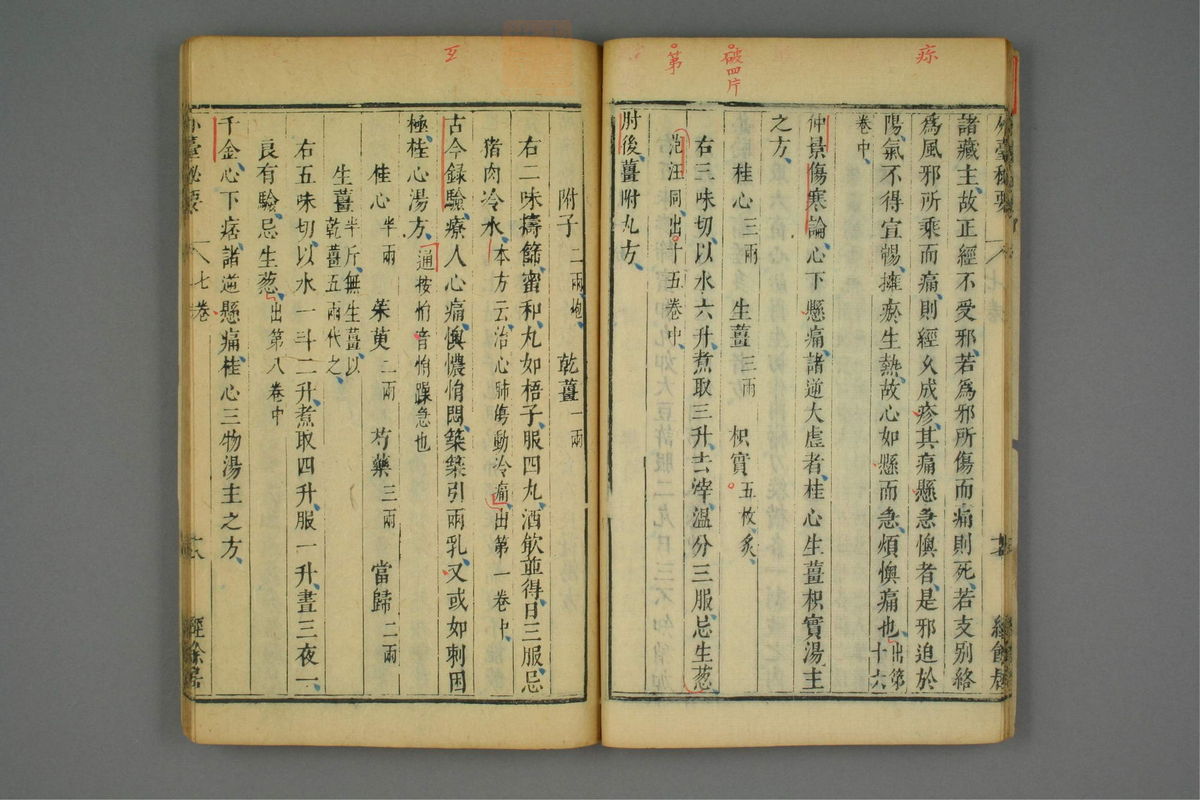 疹
破四片
第
外臺秘要
七卷
經餘居
諸藏主故正經不受邪若爲邪所傷而痛則死若支别絡
爲風邪所乘而痛則經久成疹其痛懸急懊者是邪迫於
陽氣不得宣暢擁瘀生熱故心如懸而急煩懊痛也出第十六
卷中
仲景傷寒論心下懸痛諸逆大虚者桂心生薑枳實湯主
之方
桂心三兩 生薑三兩 枳實五枚炙
右三味切以水六升煮取三升去滓温分三服忌生葱
范汪同出十五卷中
肘後薑附丸方
互
附子二兩炮 乾薑一兩
右二味擣篩蜜和丸如梧子服四丸酒飲並得日三服忌
猪肉冷水本方云治心肺傷動冷痛出第一卷中
古今録驗療人心痛懊憹悁悶築築引兩乳又或如刺困
極桂心湯方通按悁音悁躁急也
桂心半兩 茱萸二兩 芍藥三兩 當歸二兩
生薑半斤無生薑以乾薑五兩代之
右五味切以水一斗二升煮取四升服一升晝三夜一
良有驗忌生葱出第八卷中
千金心下痞諸逆懸痛桂心三物湯主之方
外臺秘要
七卷
經餘居